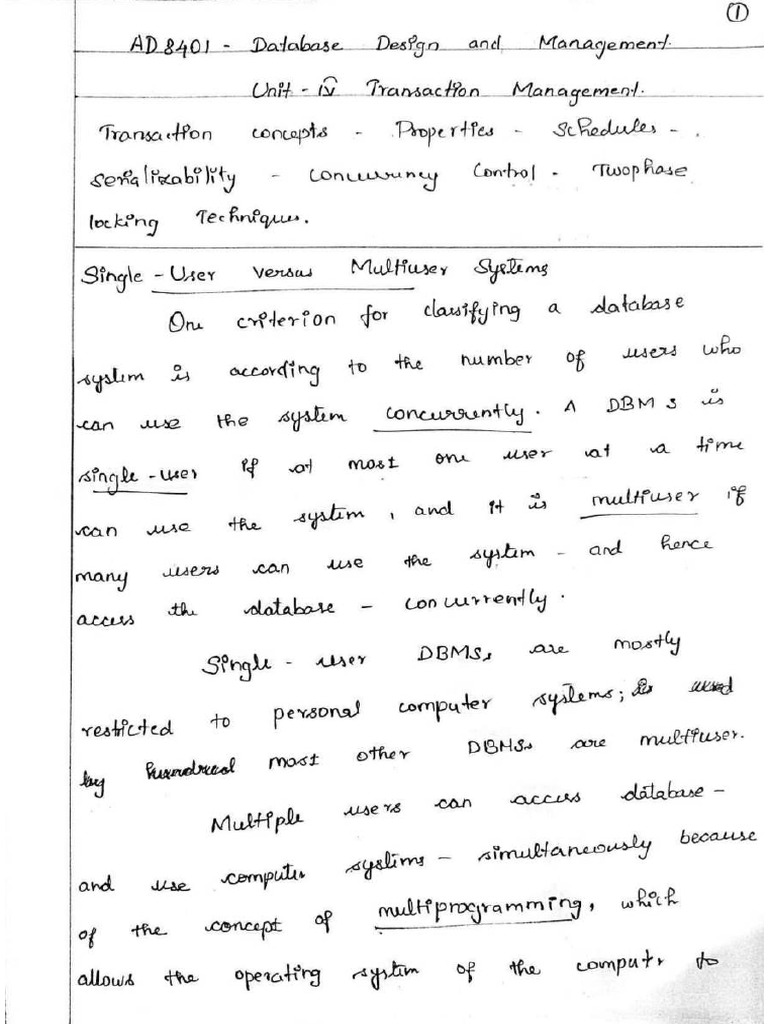 1
AD8401 - Database Design and Management.
Unit - IV Transaction Management.
Transaction concepts - Properties - Schedules -
Serializability - Concurrency Control - Twophase
locking Techniques.
Single - User versus Multiuser Systems
One criterion for classifying a database
system is according to the number of users who
can use the system concurrently. A DBMS is
single - user if at most one user at a time
can use the system, and it is multiuser if
many users can use the system - and hence
access the database - concurrently.
Single - user DBMSs are mostly
restricted to personal computer systems; is used
by hundred most other DBMSs are multiuser.
Multiple users can access database -
and use computer systems - simultaneously because
of the concept of multiprogramming, which
allows the operating system of the computer to